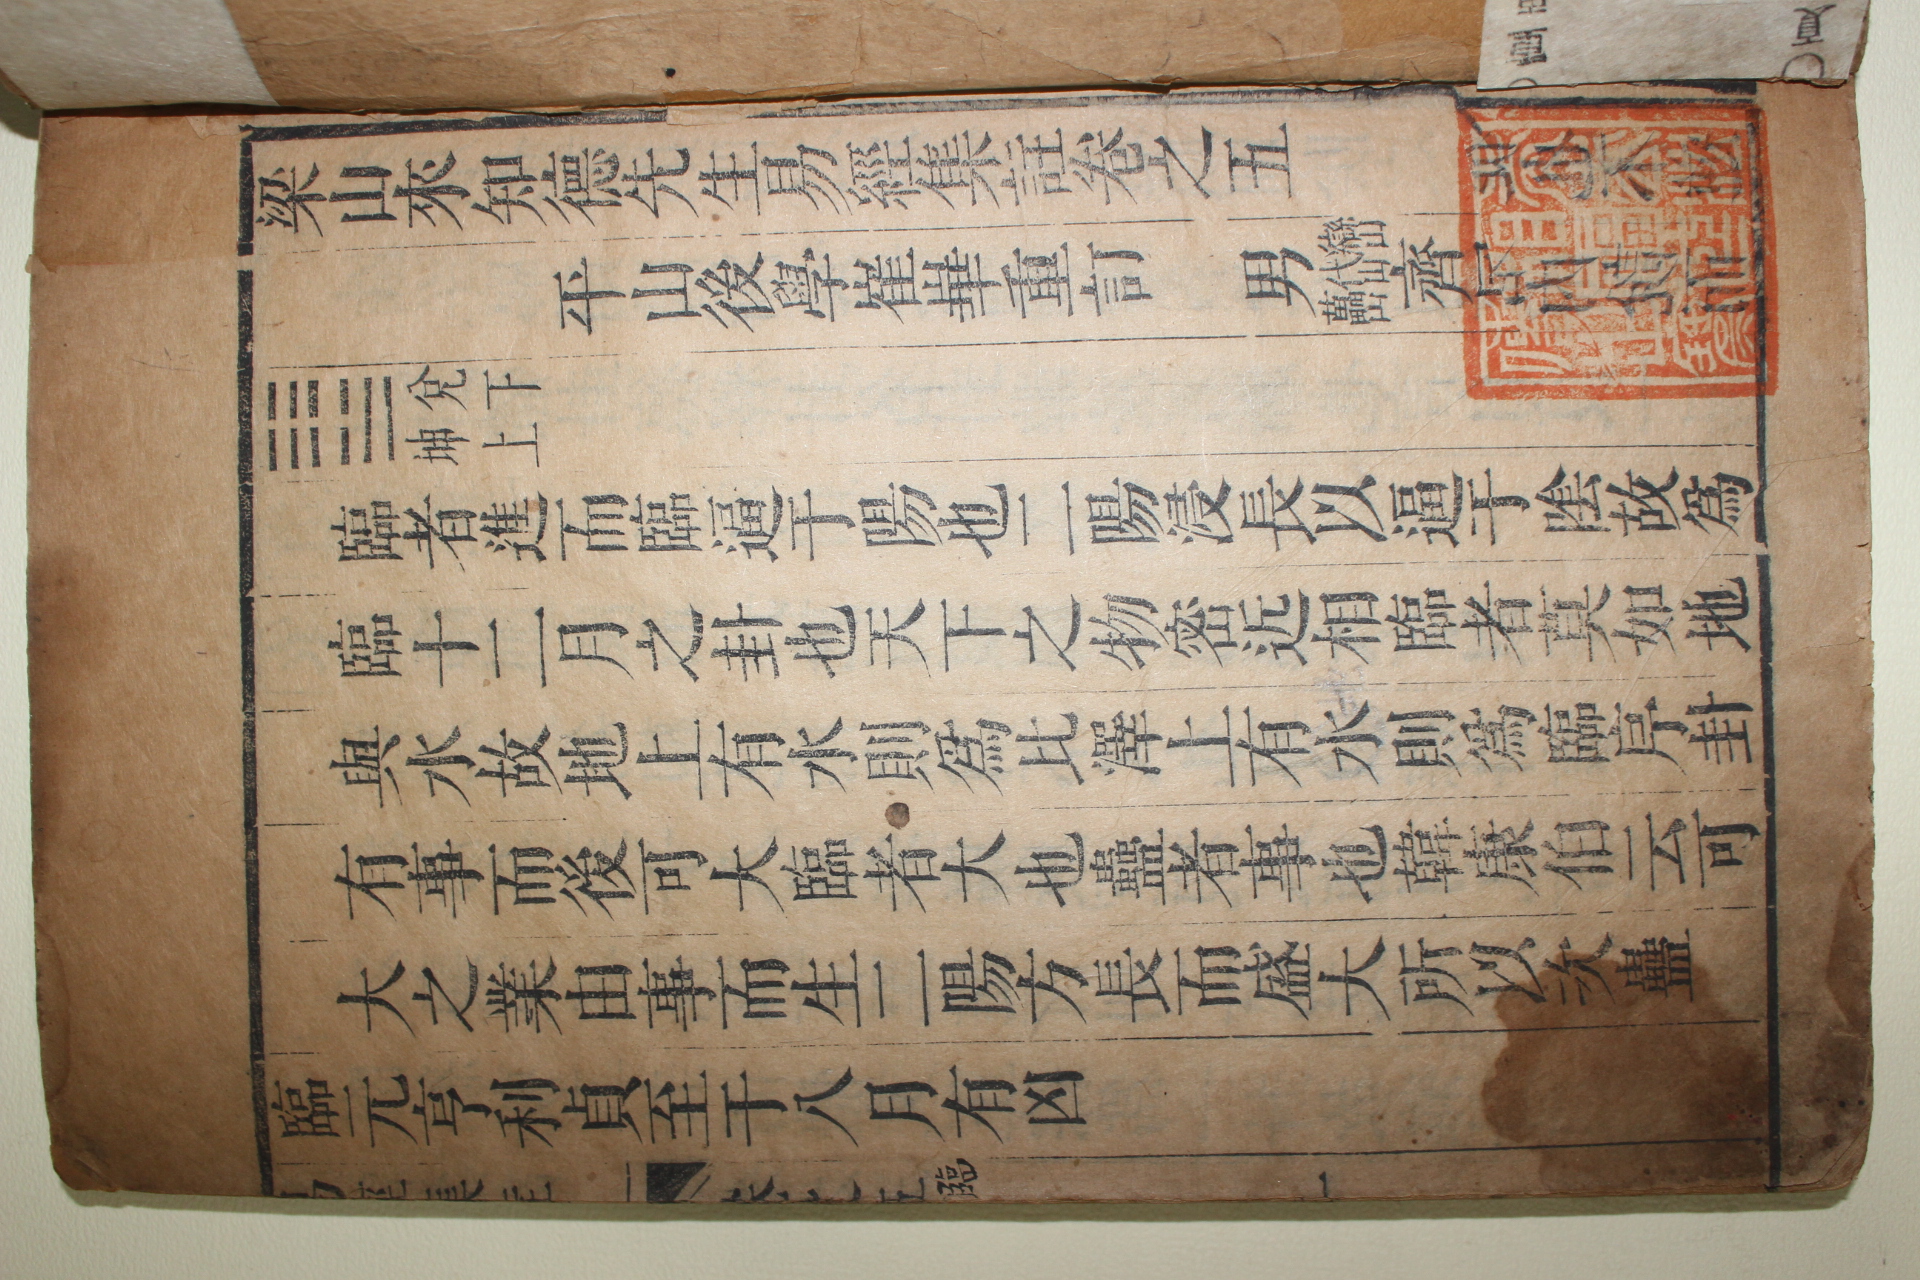 梁山來知德先生易經集註卷之五
平山後學崔崋重訂 男
巒山
代山
齊
兌下
坤上
臨者進而臨逼于陽也二陽浸長以逼于陰故爲
臨十二月之卦也天下之物密近相臨者莫如地
與水故地上有水則爲比澤上有水則爲臨序卦
有事而後可大臨者大也蠱者事也韓康伯云可
大之業由事而生二陽方長而盛大所以次蠱
臨元亨利貞至于八月有凶
易經集註
卷之五
臨
一